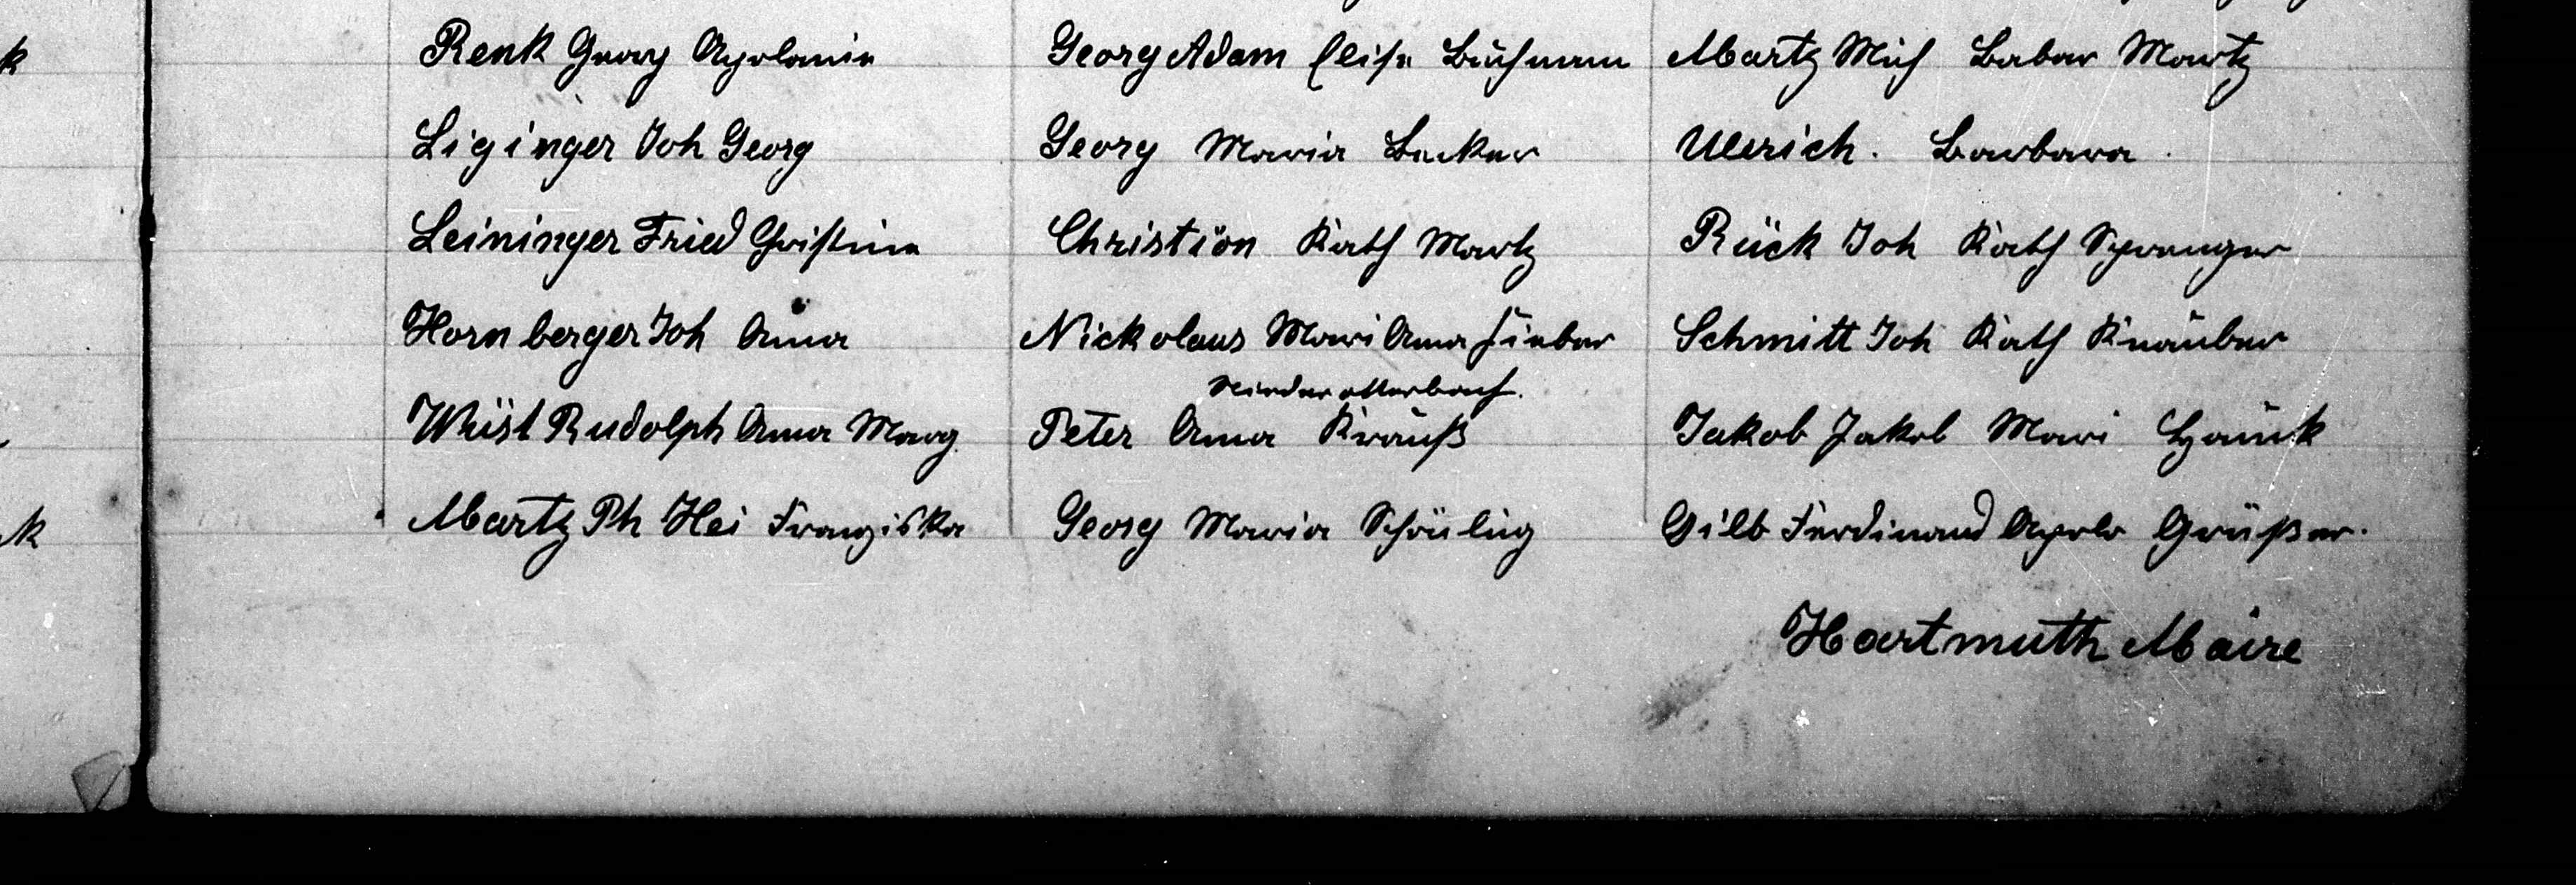 k Renk Georg Apolonia Georg Adam Elise Buchmann Martz Mich Babar Martz
Liginger Joh Georg Georg Maria Becker Ullrich. Barbara.
Leininger Fried Christina Christian Kath Martz Rück Joh Kath Spranger
Hornberger Joh Anna Nickolaus Mari Anna Hieber Schmitt Joh Kath Knäuber
Niederotterbach.
Wüst Rudolph Anna Marg. Peter Anna Krauß Jakob Jakob Mari
k Martz Ph Hei Franziska Georg Maria Gilb Ferdinand Apolo
Hartmuth Maire